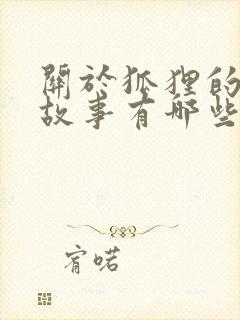 關於狐狸的
故事有哪些
宥喏